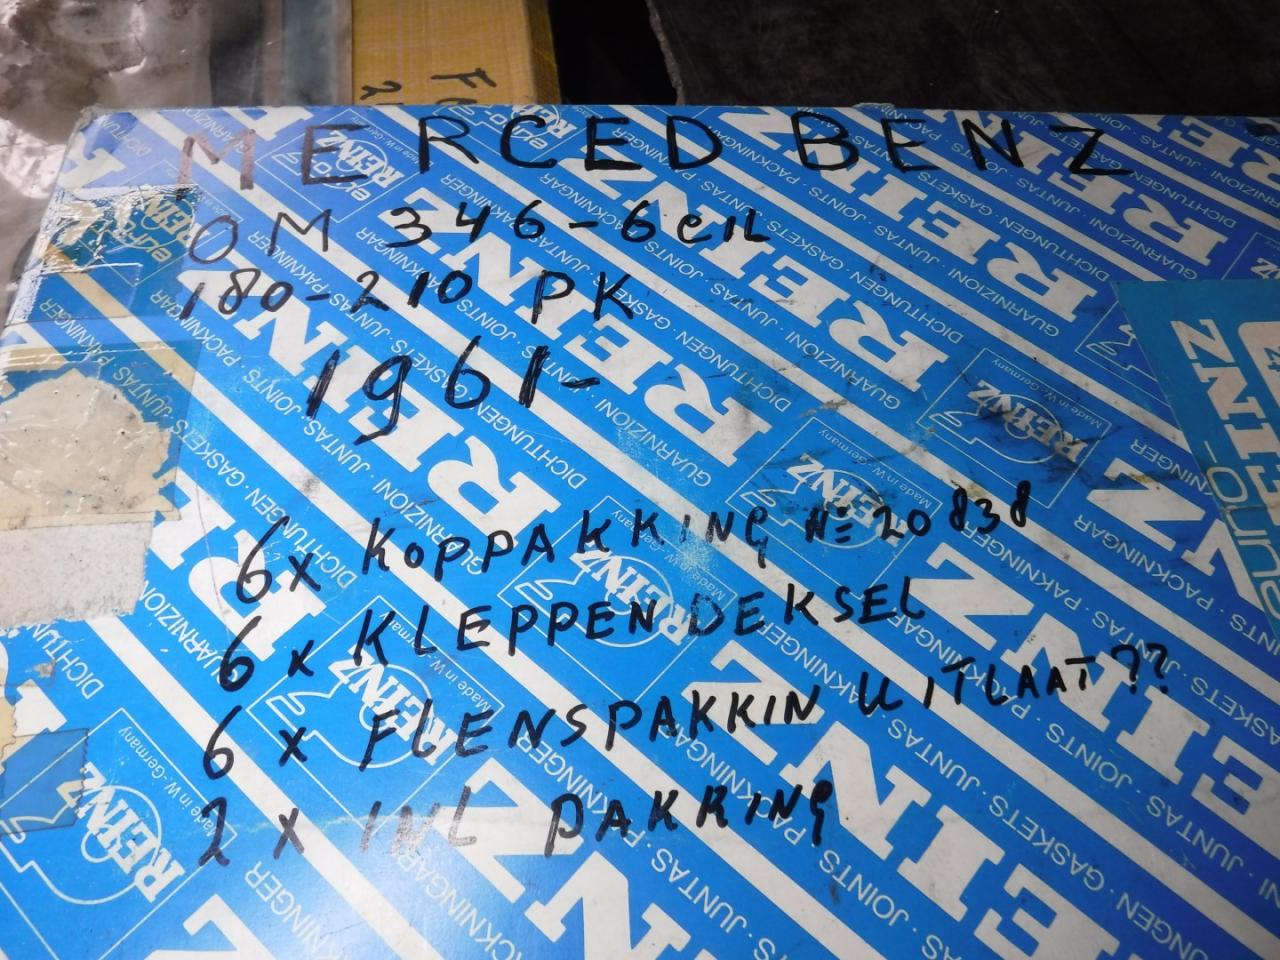 MERCED BENZ
OM 346-6 CIL
180-210 PK
1961-
6x KOPPAKKING № 20838
6x KLEPPEN DEKSEL
6x FLENSPAKKIN UITLAAT??
2x INL PAKKING
REINZ
Made in W.-Germany
DICHTUNGEN · GASKETS · JUNTAS · PAKNINGER
GUARNIZIONI · JOINTS · PACKNINGAR